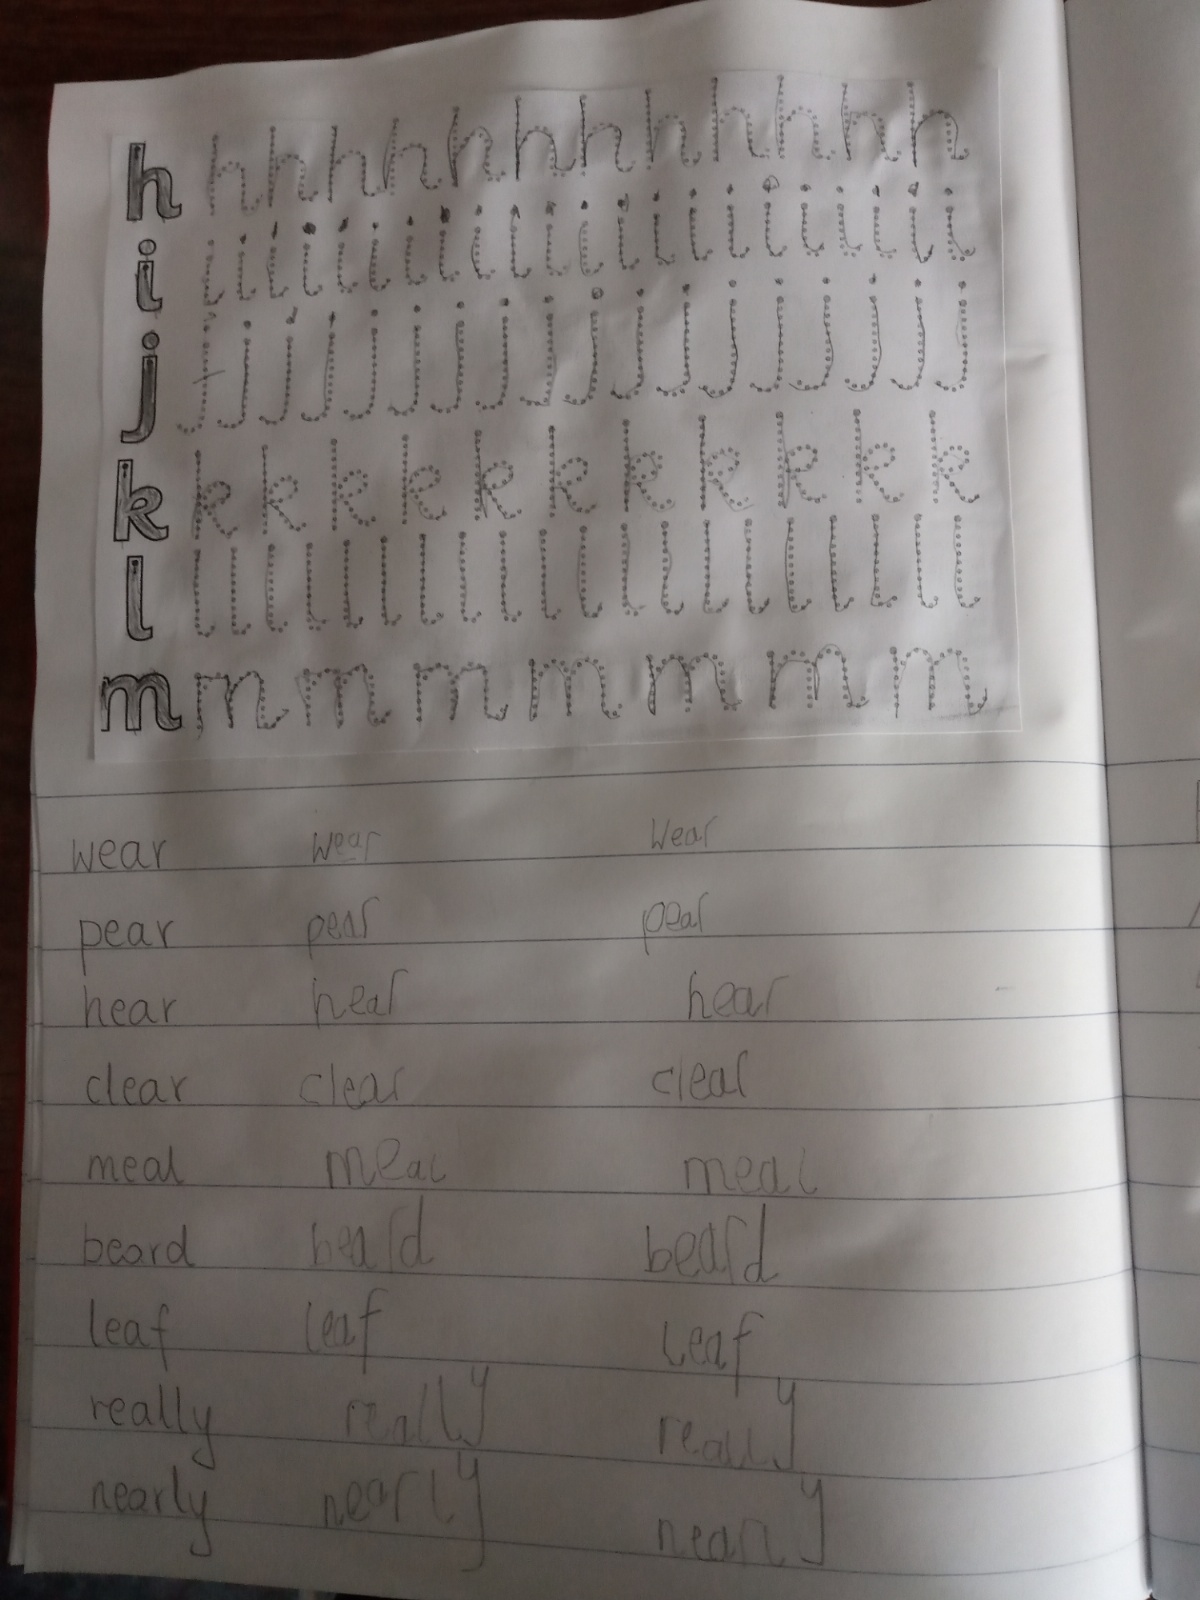 h h h h h h h h h h h h h
i i i i i i i i i i i i i i i i i i i i i i i
j j j j j j j j j j j j j j j j j j
k k k k k k k k k k k k
l l l l l l l l l l l l l l l l l l l l l
m m m m m m m m
wear wear wear
pear pear pear
hear hear hear
clear clear clear
meal meal meal
beard beard beard
leaf leaf leaf
really really really
nearly nearly nearly